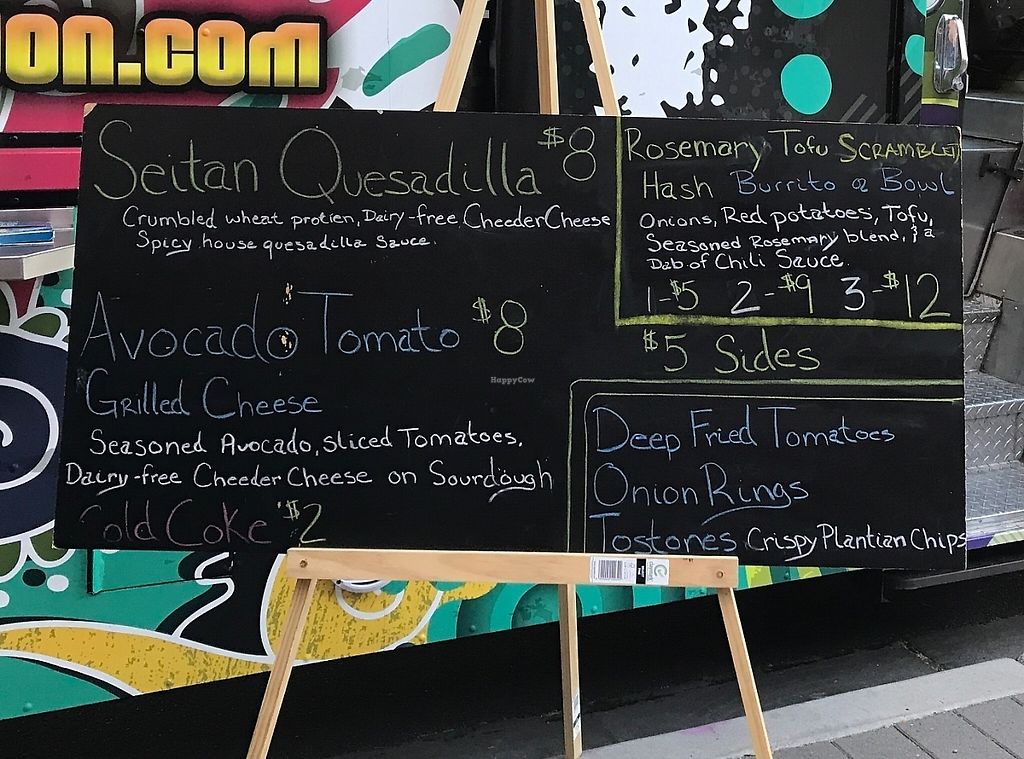 on.com
Seitan Quesadilla $8
Crumbled wheat protien, Dairy-free CheederCheese
Spicy house quesadilla Sauce.
Avocado Tomato $8
Grilled Cheese
Seasoned Avocado, sliced Tomatoes,
Dairy-free CheederCheese on Sourdough
Cold Coke $2
Rosemary Tofu SCRAMBLED
Hash Burrito or Bowl
Onions, Red potatoes, Tofu,
Seasoned Rosemary blend, & a
Dab of Chili Sauce.
1-$5 2-$9 3-$12
$5 Sides
Deep Fried Tomatoes
Onion Rings
Tostones Crispy Plantian Chips
HappyCow